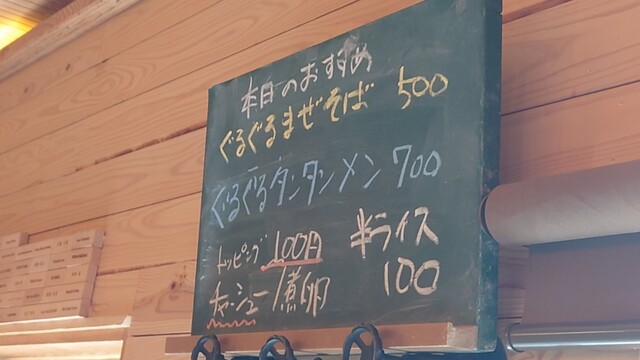 本日のおすすめ
ぐるぐるまぜそば 500
ぐるぐるタンタンメン 700
トッピング 100円 半ライス
チャーシュー/煮卵 100